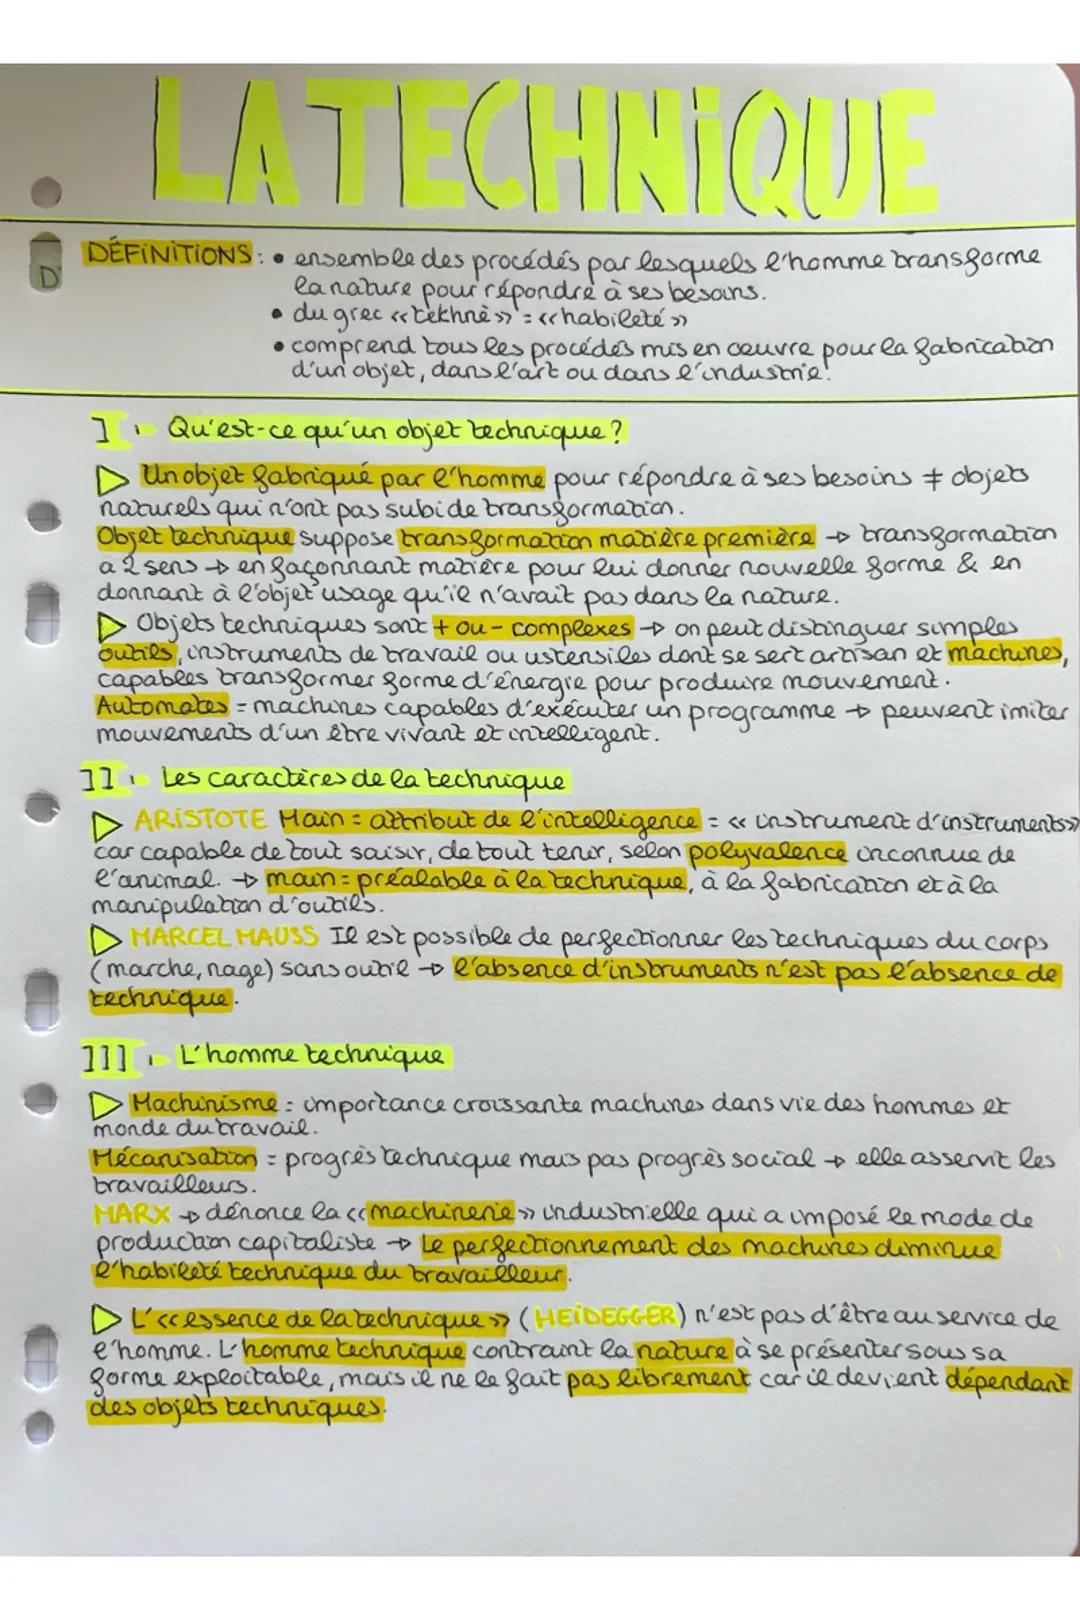 LA TECHNIQUE
D
DÉFINITIONS : • ensemble des procédés par lesquels l'homme transforme
la nature pour répondre à ses besoins.
• du grec «tekhnè» = «habileté»
• comprend tous les procédés mis en œuvre pour la fabrication
d'un objet, dans l'art ou dans l'industrie.
I - Qu'est-ce qu'un objet technique ?
▷ Un objet fabriqué par l'homme pour répondre à ses besoins ≠ objets
naturels qui n'ont pas subi de transformation.
Objet technique suppose transformation matière première → transformation
a 2 sens → en façonnant matière pour lui donner nouvelle forme & en
donnant à l'objet usage qu'il n'avait pas dans la nature.
▷ Objets techniques sont + ou - complexes → on peut distinguer simples
outils, instruments de travail ou ustensiles dont se sert artisan et machines,
capables transformer forme d'énergie pour produire mouvement.
Automates = machines capables d'exécuter un programme → peuvent imiter
mouvements d'un être vivant et intelligent.
II - Les caractères de la technique
▷ ARISTOTE Main = attribut de l'intelligence = « instrument d'instruments»
car capable de tout saisir, de tout tenir, selon polyvalence inconnue de
l'animal. → main = préalable à la technique, à la fabrication et à la
manipulation d'outils.
▷ MARCEL MAUSS Il est possible de perfectionner les techniques du corps
(marche, nage) sans outil → l'absence d'instruments n'est pas l'absence de
technique.
III - L'homme technique
▷ Machinisme : importance croissante machines dans vie des hommes et
monde du travail.
Mécanisation = progrès technique mais pas progrès social → elle asservit les
travailleurs.
MARX → dénonce la «machinerie» industrielle qui a imposé le mode de
production capitaliste → Le perfectionnement des machines diminue
l'habileté technique du travailleur.
▷ L'«essence de la technique» (HEIDEGGER) n'est pas d'être au service de
l'homme. L'homme technique contraint la nature à se présenter sous sa
forme exploitable, mais il ne le fait pas librement car il devient dépendant
des objets techniques.